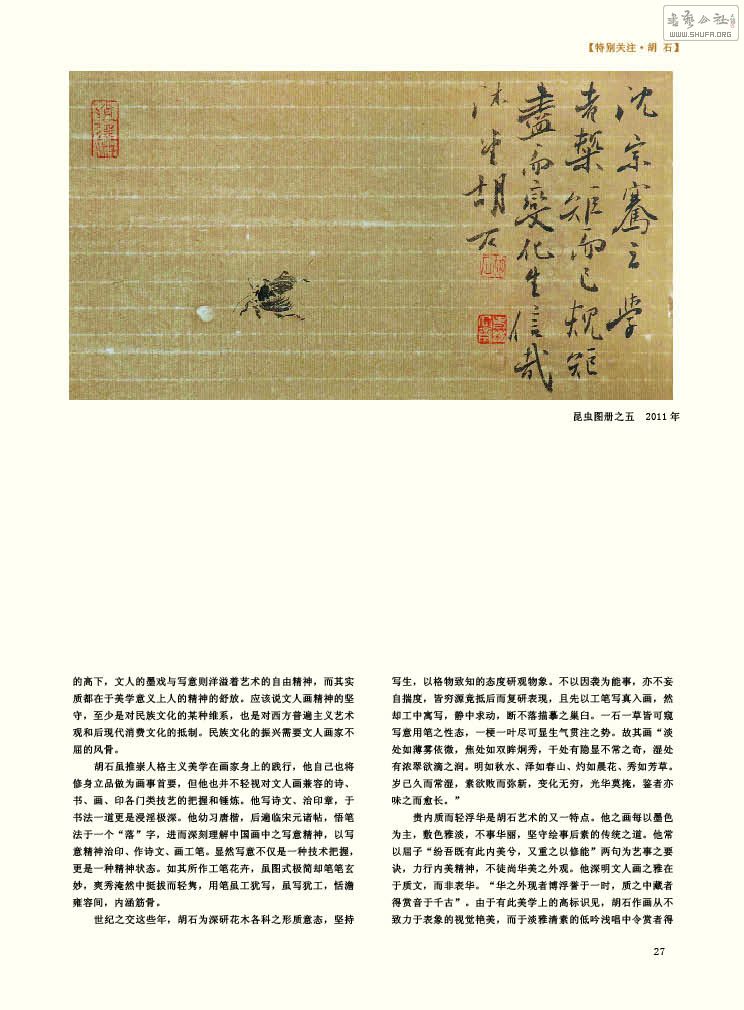 书艺公社
WWW.SHUFA.ORG
【特别关注·胡 石】
沈宗骞言学
者槼矩而已规矩
尽而变化生信哉
沐堂胡石
昆虫图册之五 2011 年
的高下，文人的墨戏与写意则洋溢着艺术的自由精神，而其实
质都在于美学意义上人的精神的舒放。应该说文人画精神的坚
守，至少是对民族文化的某种维系，也是对西方普遍主义艺术
观和后现代消费文化的抵制。民族文化的振兴需要文人画家不
屈的风骨。
胡石虽推崇人格主义美学在画家身上的践行，他自己也将
修身立品做为画事首要，但他也并不轻视对文人画兼容的诗、
书、画、印各门类技艺的把握和锤炼。他写诗文、治印章，于
书法一道更是浸淫极深。他幼习唐楷，后遍临宋元诸帖，悟笔
法于一个“落”字，进而深刻理解中国画中之写意精神，以写
意精神治印、作诗文、画工笔。显然写意不仅是一种技术把握，
更是一种精神状态。如其所作工笔花卉，虽图式极简却笔笔玄
妙，爽秀淹然中挺拔而轻隽，用笔虽工犹写，虽写犹工，恬澹
雍容间，内涵筋骨。
世纪之交这些年，胡石为深研花木各科之形质意态，坚持
写生，以格物致知的态度研观物象。不以因袭为能事，亦不妄
自揣度，皆穷源竟抵后而复研表现，且先以工笔写真入画，然
却工中寓写，静中求动，断不落描摹之窠臼。一石一草皆可窥
写意用笔之性态，一梗一叶尽可显生气贯注之势。故其画“淡
处如薄雾依微，焦处如双眸炯秀，干处有隐显不常之奇，湿处
有浓翠欲滴之润。明如秋水、泽如春山、灼如晨花、秀如芳草。
岁已久而常湿，素欲败而弥新，变化无穷，光华莫掩，鉴者亦
味之而愈长。”
贵内质而轻浮华是胡石艺术的又一特点。他之画每以墨色
为主，敷色雅淡，不事华丽，坚守绘事后素的传统之道。他常
以屈子“纷吾既有此内美兮，又重之以修能”两句为艺事之要
诀，力行内美精神，不徒尚华美之外观。他深明文人画之雅在
于质文，而非表华。“华之外现者博浮誉于一时，质之中藏者
得赏音于千古”。由于有此美学上的高标识见，胡石作画从不
致力于表象的视觉艳美，而于淡雅清素的低吟浅唱中令赏者得
27